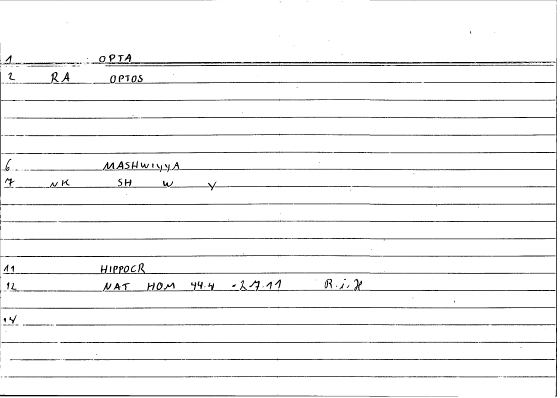 1 OPTA
2 RA OPTOS
6 MASHWIYYA
7 NK SH W Y
11 HIPPOCR
12 NAT HOM 44.4 -27.11
14